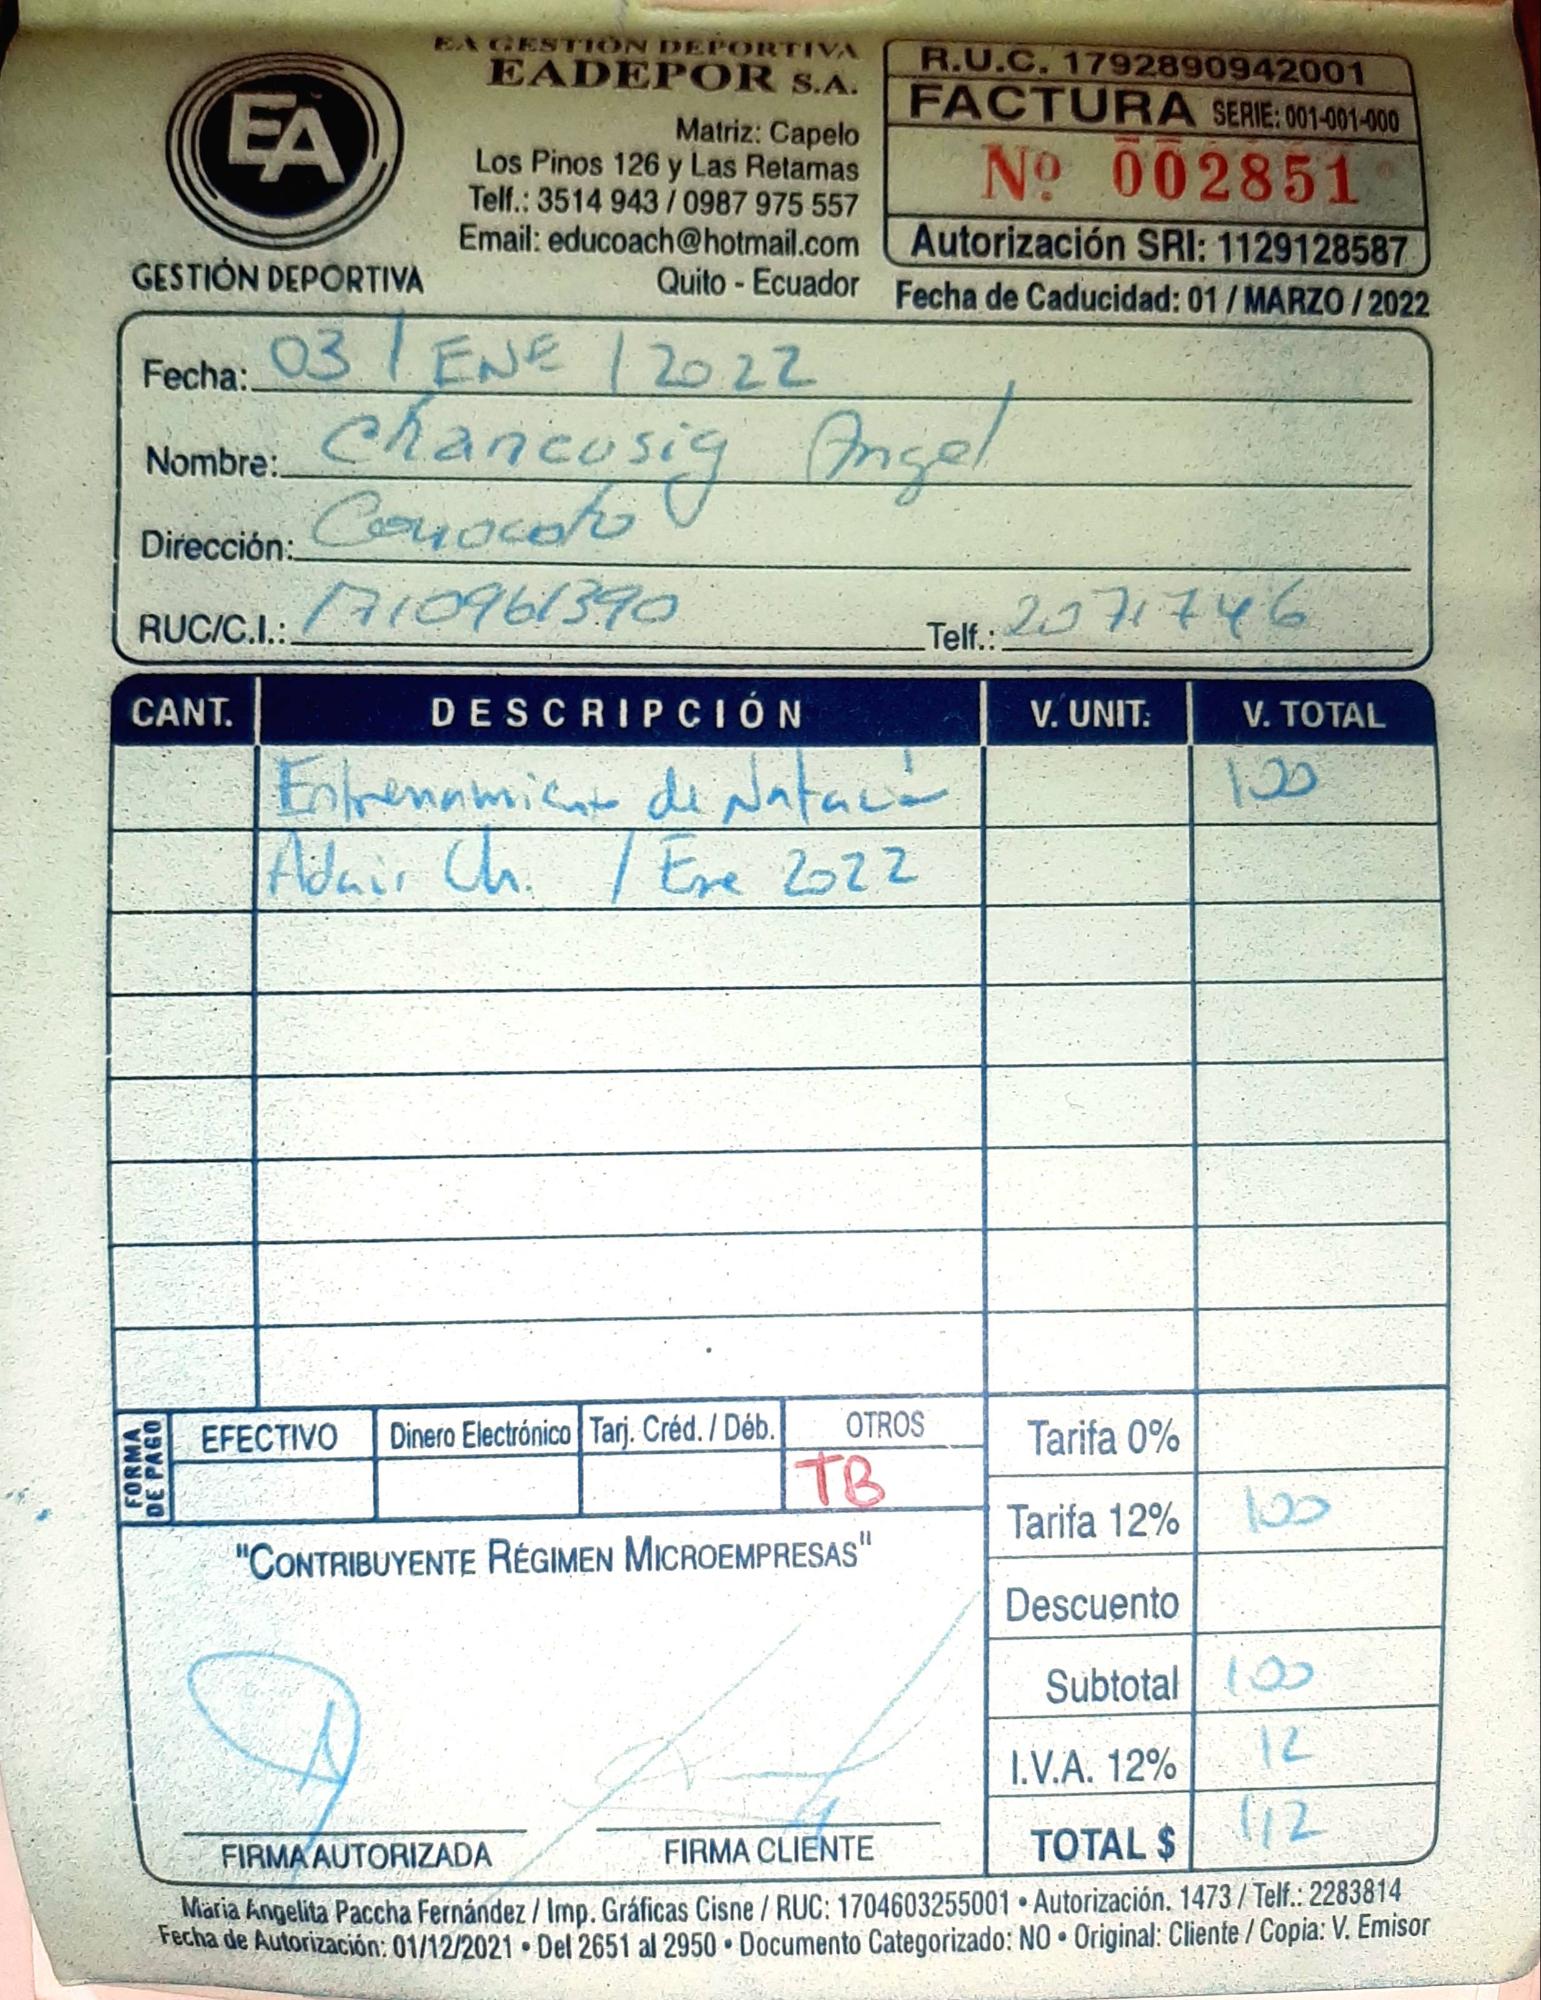 EA GESTIÓN DEPORTIVA
EADEPOR S.A.
EA
GESTIÓN DEPORTIVA
Matriz: Capelo
Los Pinos 126 y Las Retamas
Telf.: 3514 943 / 0987 975 557
Email: educoach@hotmail.com
Quito - Ecuador
R.U.C. 1792890942001
FACTURA SERIE: 001-001-000
Nº 002851
Autorización SRI: 1129128587
Fecha de Caducidad: 01 / MARZO / 2022
Fecha: 03 / ENE / 2022
Nombre: Chancusig Angel
Dirección: Conocoto
RUC/C.I.: 1710961390 Telf.: 2071746
CANT. DESCRIPCIÓN V. UNIT. V. TOTAL
Entrenamiento de Natación 100
Adair Ch. / Ene 2022
FORMA DE PAGO
EFECTIVO Dinero Electrónico Tarj. Créd. / Déb. OTROS
TB
Tarifa 0%
Tarifa 12% 100
Descuento
Subtotal 100
I.V.A. 12% 12
TOTAL $ 112
"CONTRIBUYENTE RÉGIMEN MICROEMPRESAS"
FIRMA AUTORIZADA FIRMA CLIENTE
María Angelita Paccha Fernández / Imp. Gráficas Cisne / RUC: 1704603255001 • Autorización. 1473 / Telf.: 2283814
Fecha de Autorización: 01/12/2021 • Del 2651 al 2950 • Documento Categorizado: NO • Original: Cliente / Copia: V. Emisor